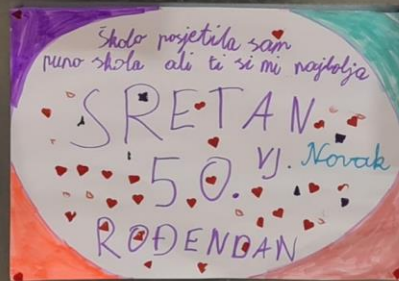 Školo posjetila sam
puno skola ali ti si mi najbolja
SRETAN
50. VJ. Novak
ROĐENDAN